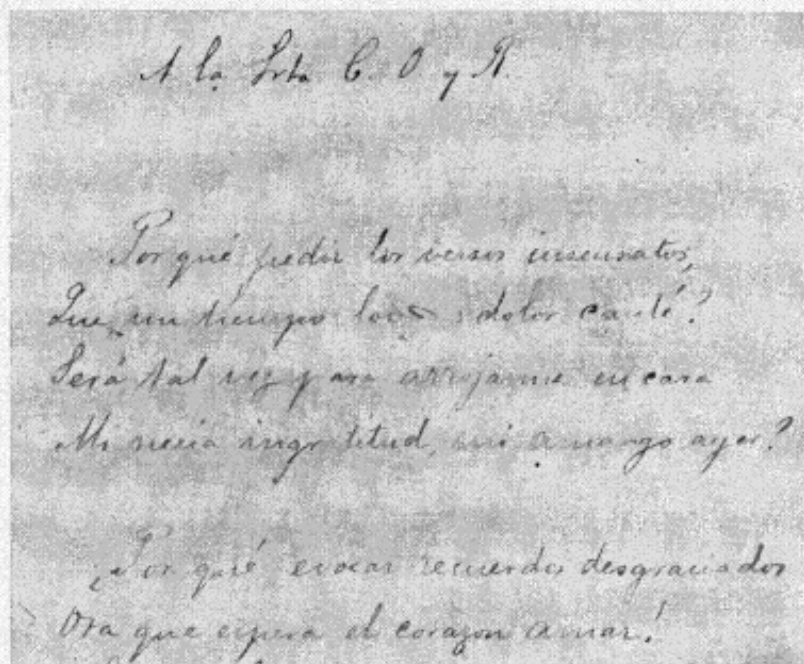 A la Srta C. O. y R.
Por qué pedir los versos insensatos,
Que un tiempo loco dolor canté?
Será tal vez para arrojarme en cara
Mi necia ingratitud, mi amargo ayer?
¿Por qué evocar recuerdos desgraciados
Ora que espera el corazon amar!